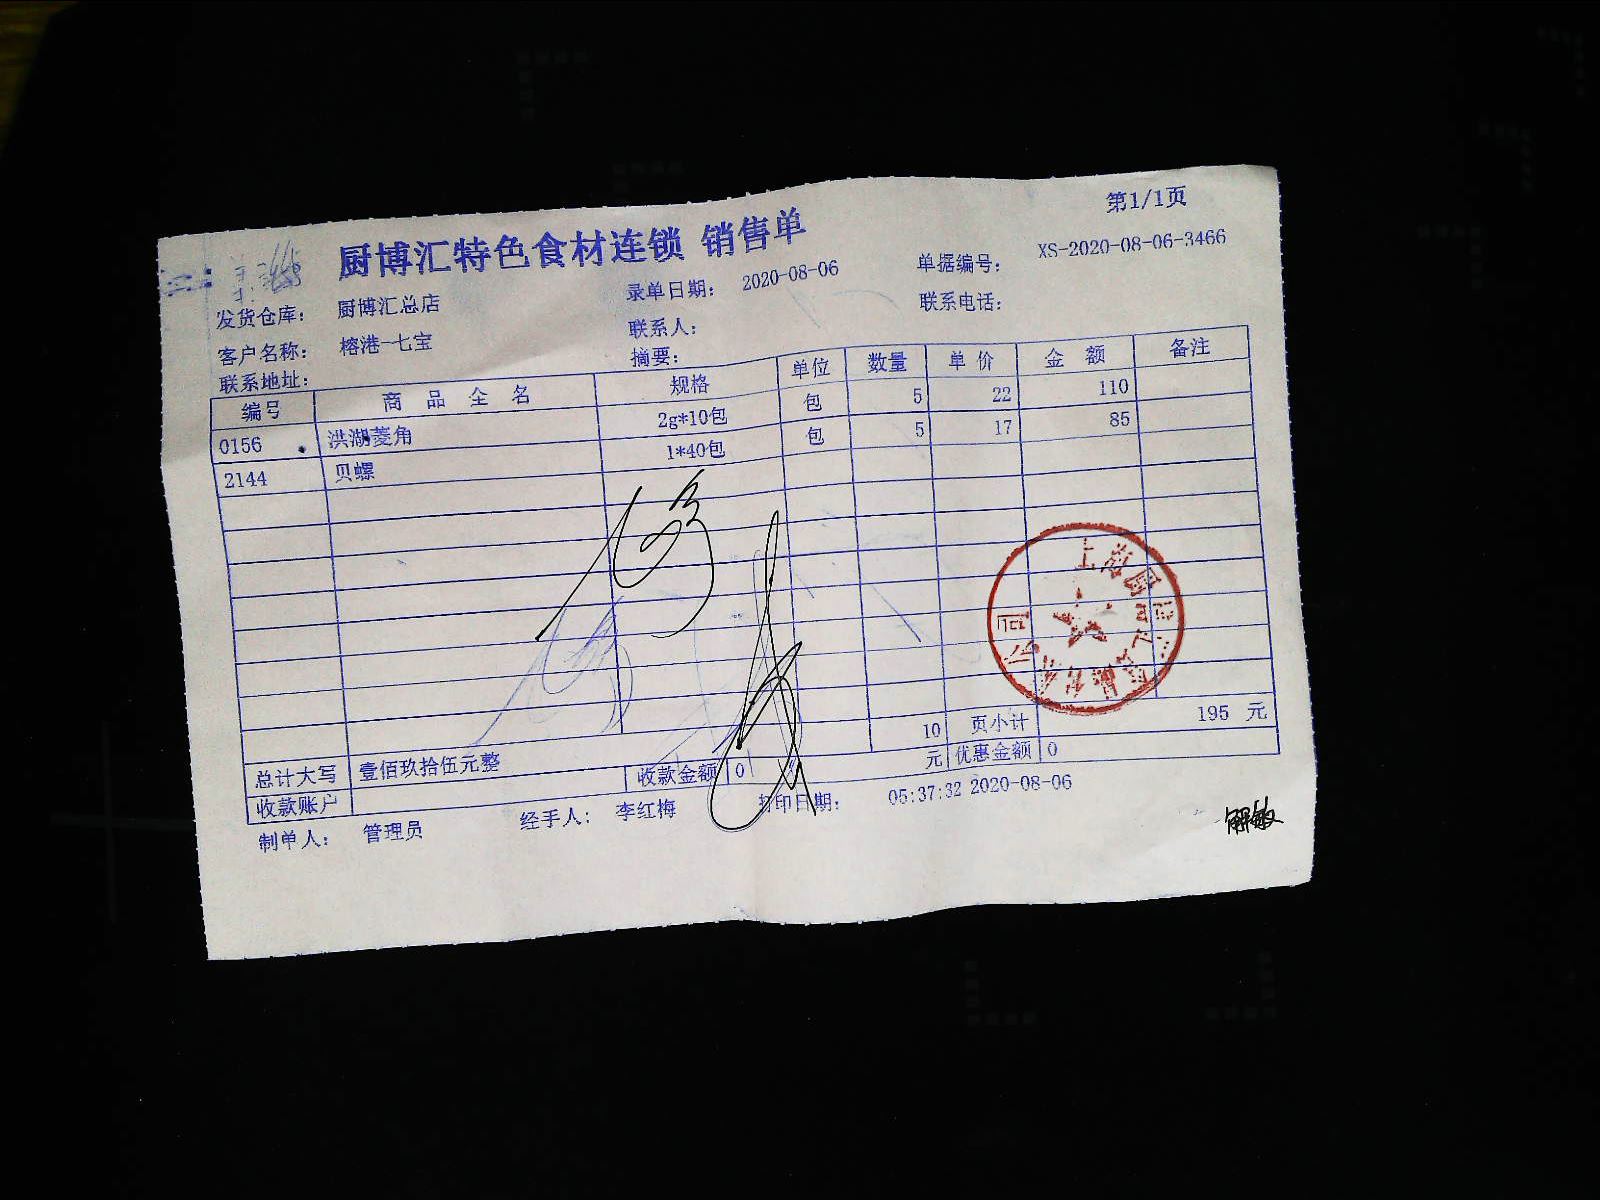 第1/1页
厨博汇特色食材连锁 销售单
发货仓库: 厨博汇总店 录单日期: 2020-08-06 单据编号: XS-2020-08-06-3466
客户名称: 榕港-七宝 联系人: 联系电话:
联系地址: 摘要:
编号 商品全名 规格 单位 数量 单价 金额 备注
0156 洪湖菱角 2g*10包 包 5 22 110
2144 贝螺 1*40包 包 5 17 85
10 页小计 195 元
总计大写 壹佰玖拾伍元整 收款金额 0 元 优惠金额 0
收款账户
制单人: 管理员 经手人: 李红梅 打印日期: 05:37:32 2020-08-06
解敏